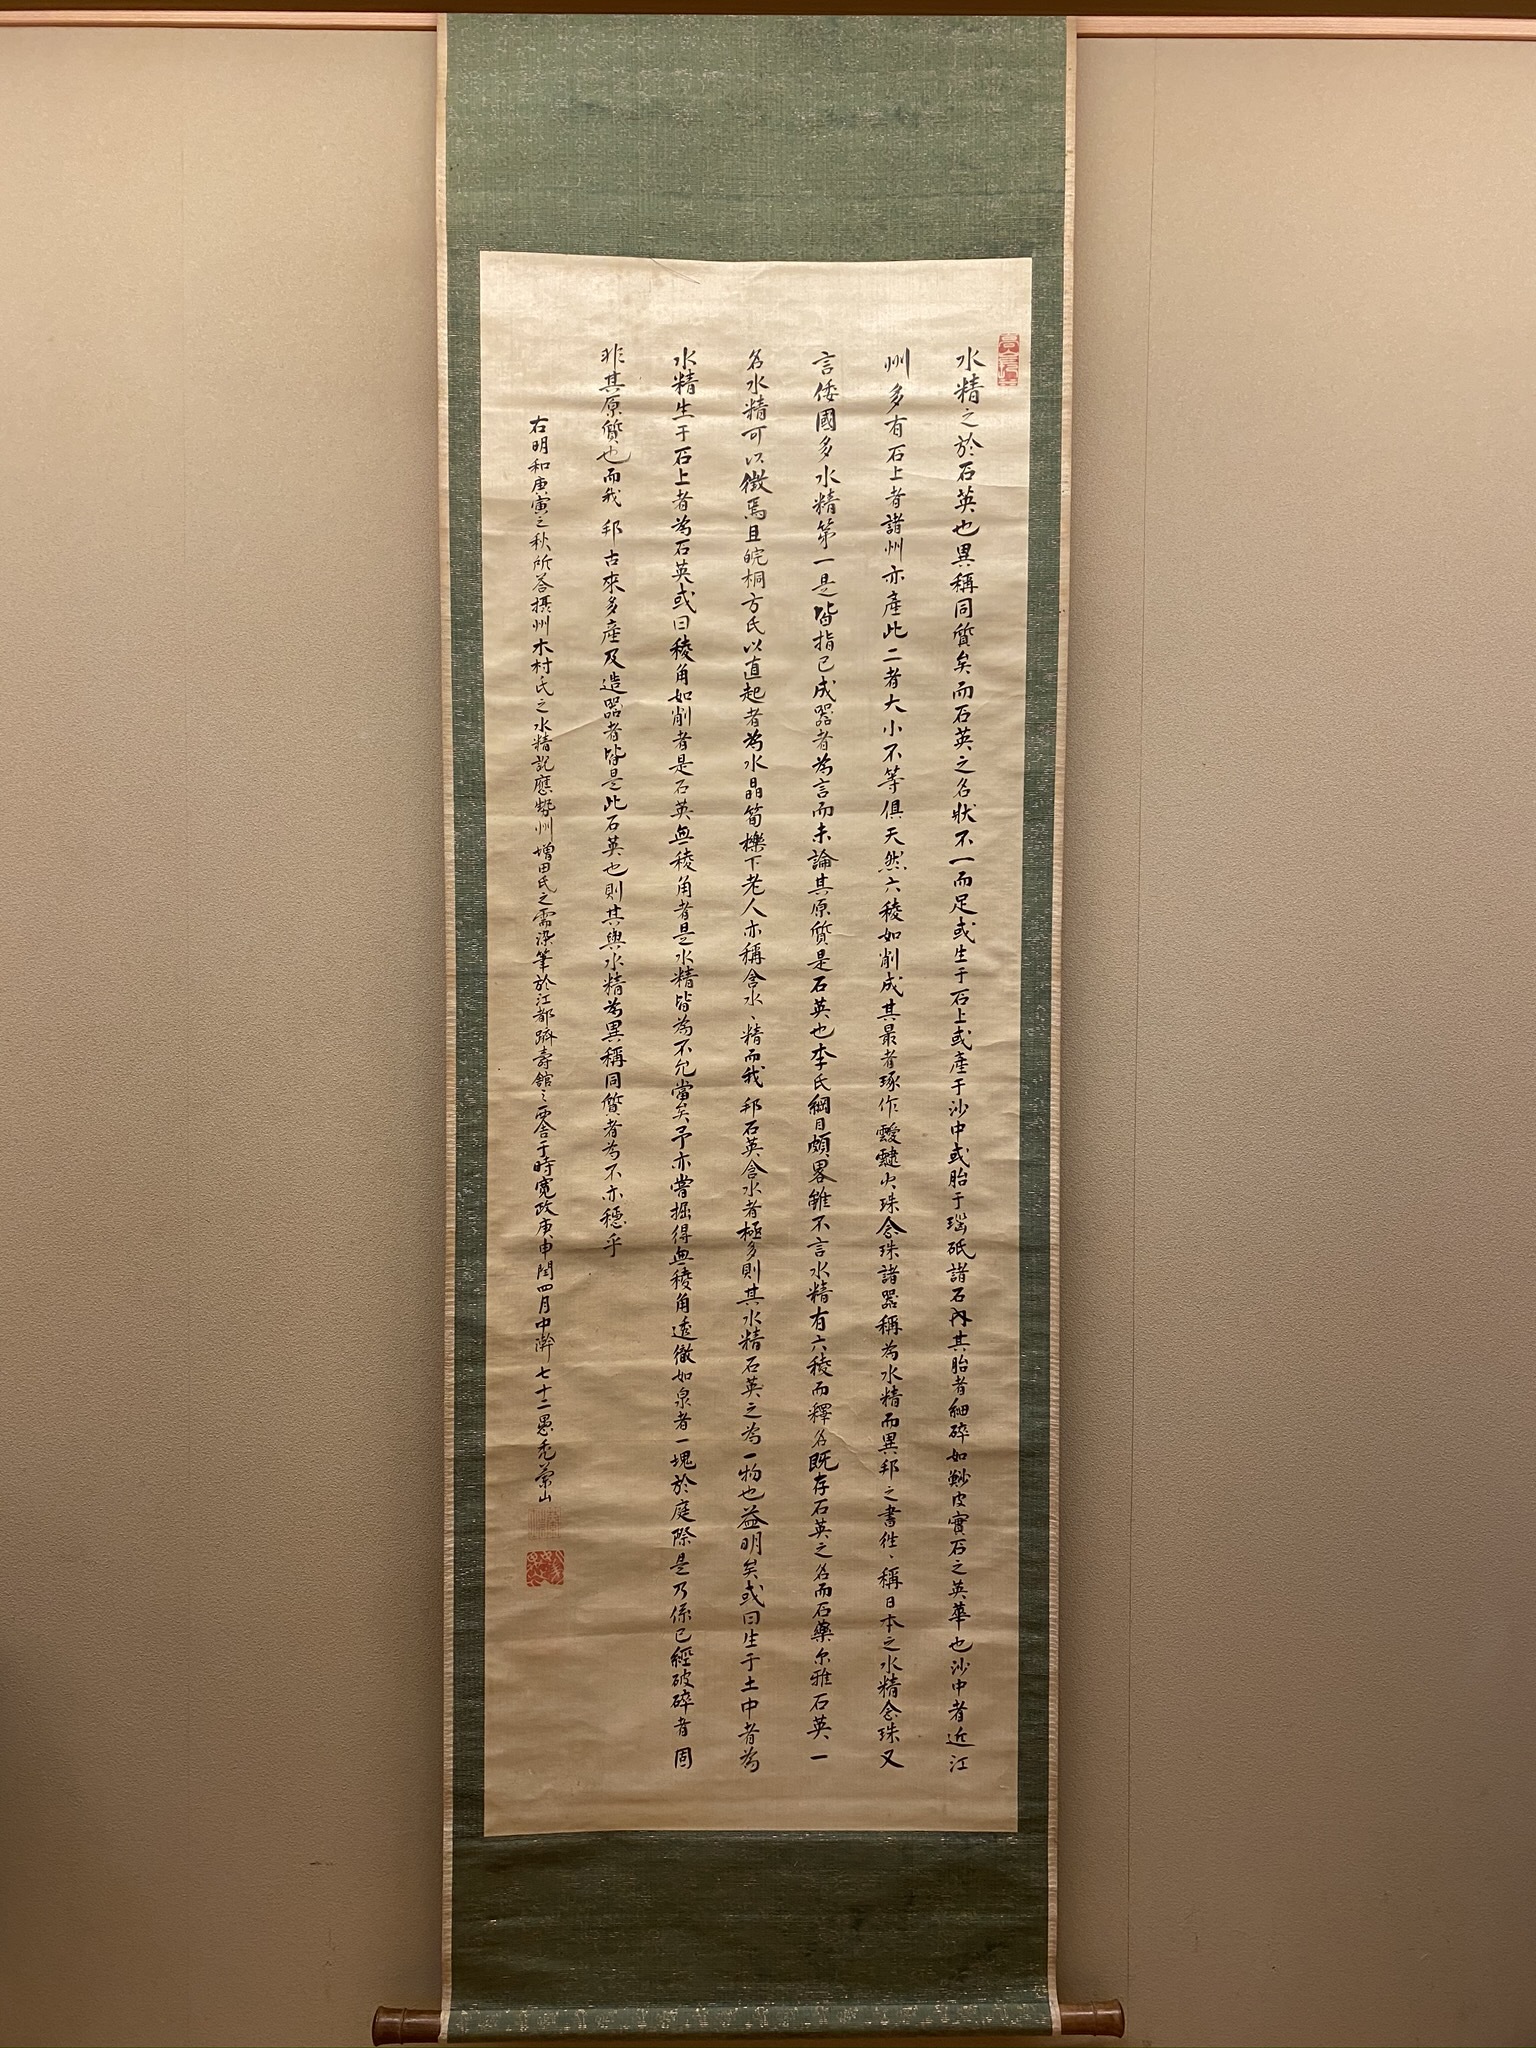 水精之於石英也異稱同質矣而石英之名狀不一而足或生于石上或產于沙中或胎于瑙砥諸石內其胎者細碎如鯊皮實石之英華也沙中者近江
州多有石上者諸州亦產此二者大小不等俱天然六稜如削成其最者琢作靉靆火珠念珠諸器稱為水精而異邦之書徃〻稱日本之水精念珠又
言倭國多水精第一是皆指已成器者為言而未論其原質是石英也李氏綱目頗畧雖不言水精有六稜而釋名既存石英之名而石藥尔雅石英一
名水精可以徵焉且皖桐方氏以直起者為水晶筍櫟下老人亦稱含水〻精而我邦石英含水者極多則其水精石英之為一物也益明矣或曰生于土中者為
水精生于石上者為石英或曰稜角如削者是石英無稜角者是水精皆為不允當矣予亦嘗掘得無稜角透徹如泉者一塊於庭際是乃係已經破碎者固
非其原質也而我邦古來多產及造器者皆是此石英也則其與水精為異稱同質者為不亦穩乎
右明和庚寅之秋所答摂州木村氏之水精說應勢州增田氏之需染筆於江都躋壽館之西舍于時寬政庚申閏四月中澣七十二愚禿蘭山